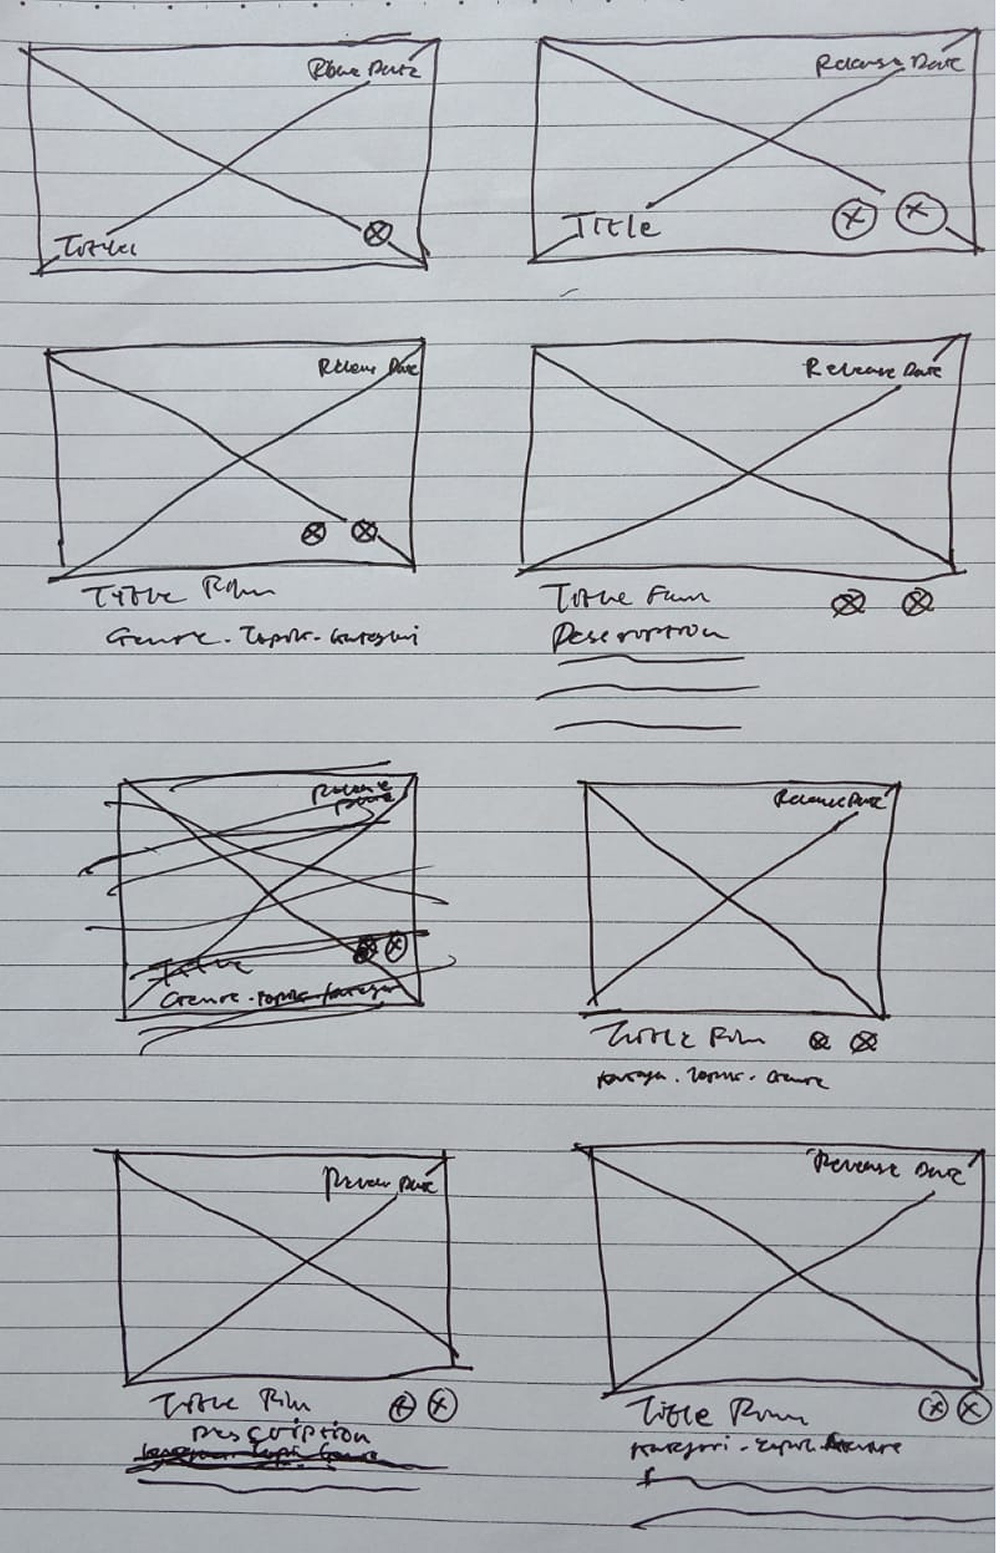 Release Date
Title
Release Date
Title
Release Date
Title Film
Genre - Topik - Kategori
Release Date
Title Film
Description
Release Date
Title
Genre - Topik - Kategori
Release Date
Title Film
Kategori - Topik - Genre
Release Date
Title Film
Description
Release Date
Title Film
Kategori - Topik - Genre